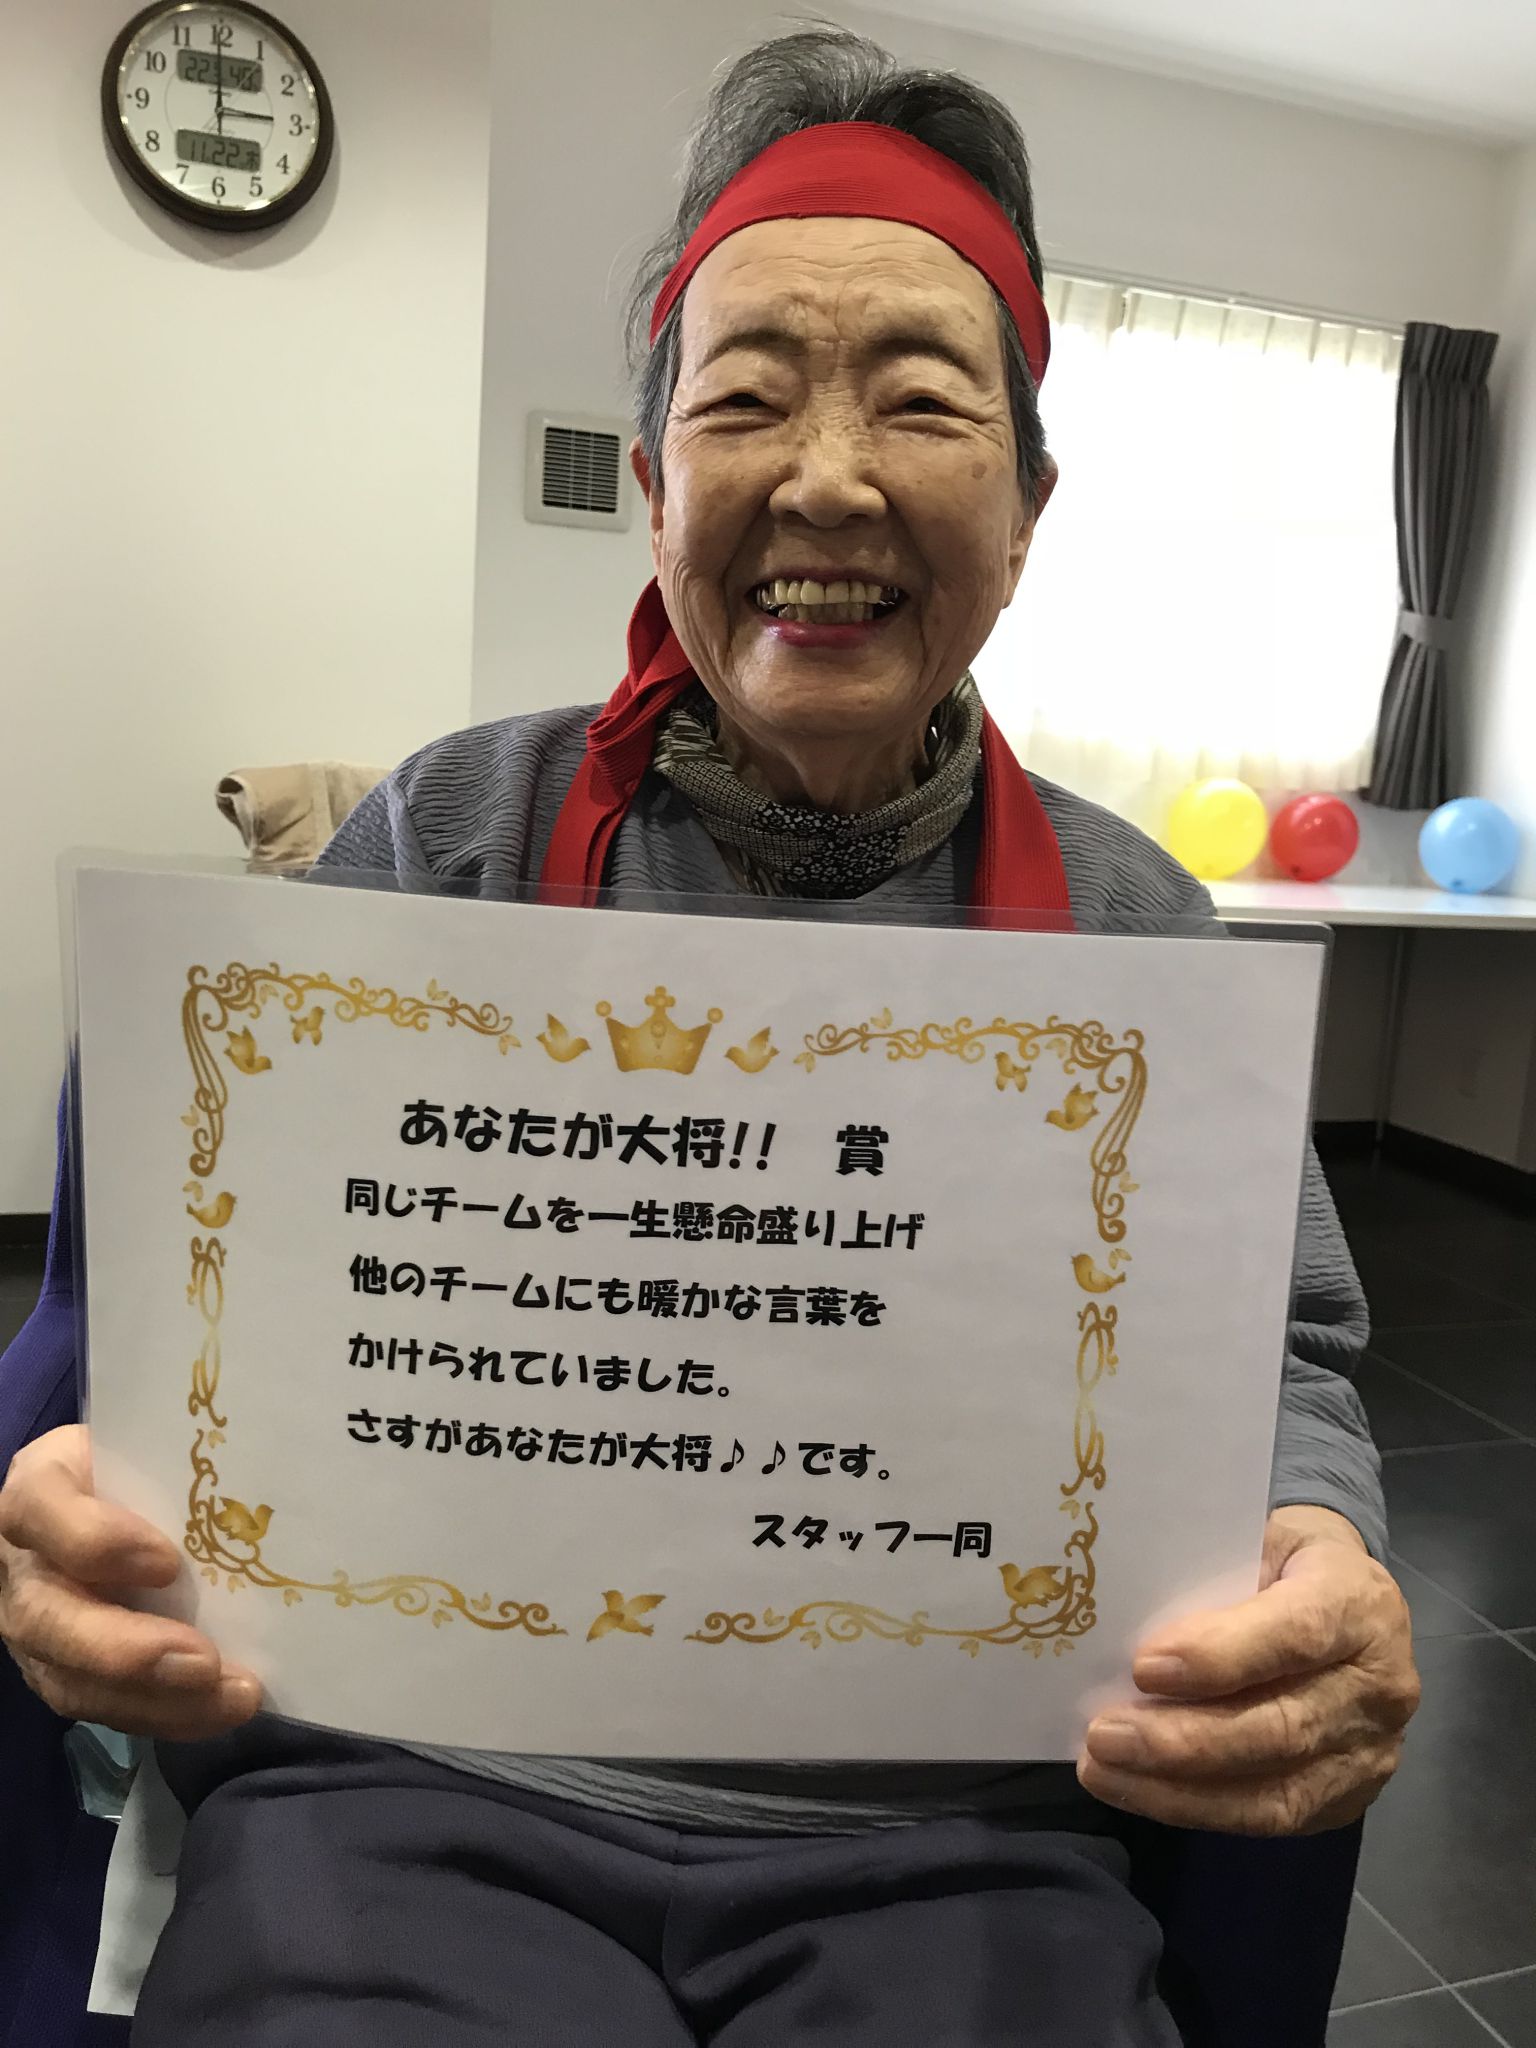 11 12 1
10 2
9 3
8 4
7 6 5
11.22 木
あなたが大将!! 賞
同じチームを一生懸命盛り上げ
他のチームにも暖かな言葉を
かけられていました。
さすがあなたが大将♪♪です。
スタッフ一同